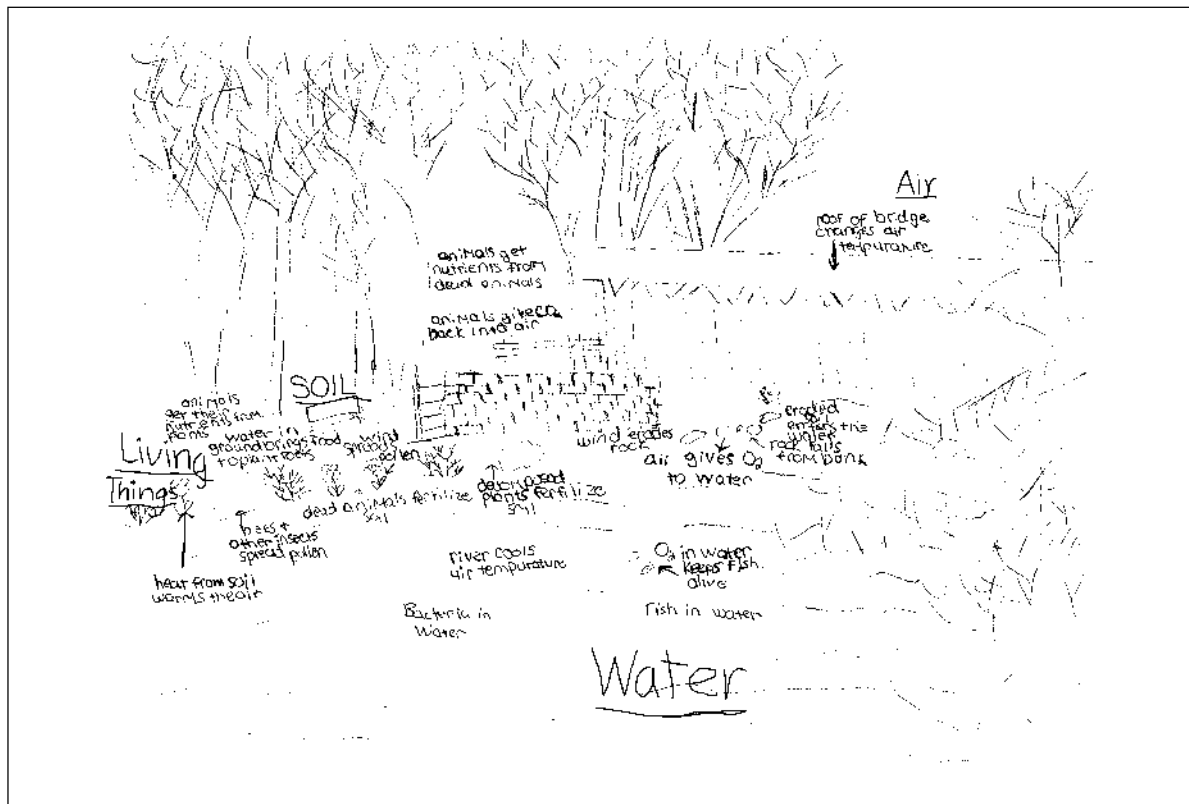 Air
roof of bridge
changes air
tempurature
animals get
nutrients from
dead animals
animals give CO2
back into air
SOIL
animals
get their
nutrients from
plants
water in
ground brings food
to plant roots
wind
spreads
pollen
wind erodes
rock
eroded
soil
enters the
water
rock falls
from bank
air gives O2
to water
Living
Things
dead animals fertilize
soil
decomposed
plants fertilize
soil
bees +
other insects
spread pollen
heat from soil
warms the air
river cools
air tempurature
O2 in water
keeps fish
alive
Bacteria in
Water
Fish in water
Water